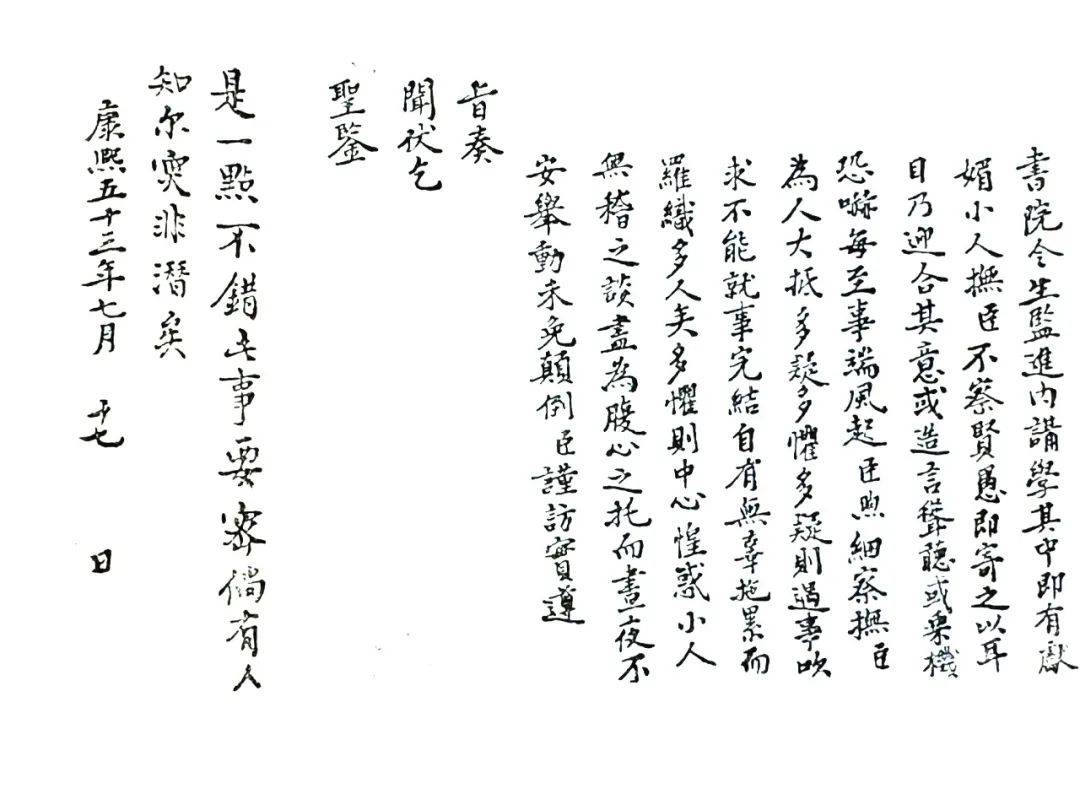 書院令生監進内講學其中即有獻
媚小人撫臣不察賢愚即寄之以耳
目乃迎合其意或造言聳聽或乗機
恐嚇每至事端風起臣煦細察撫臣
為人大抵多疑多懼多疑則遇事吹
求不能就事完結自有無辜拖累而
羅織多人矣多懼則中心惶惑小人
無稽之談盡為腹心之托而晝夜不
安舉動未免顛倒臣謹訪實遵
旨奏
聞伏乞
聖鑒
是一點不錯此事要密倘有人
知尔非潛矣
康熙五十三年七月 十七 日